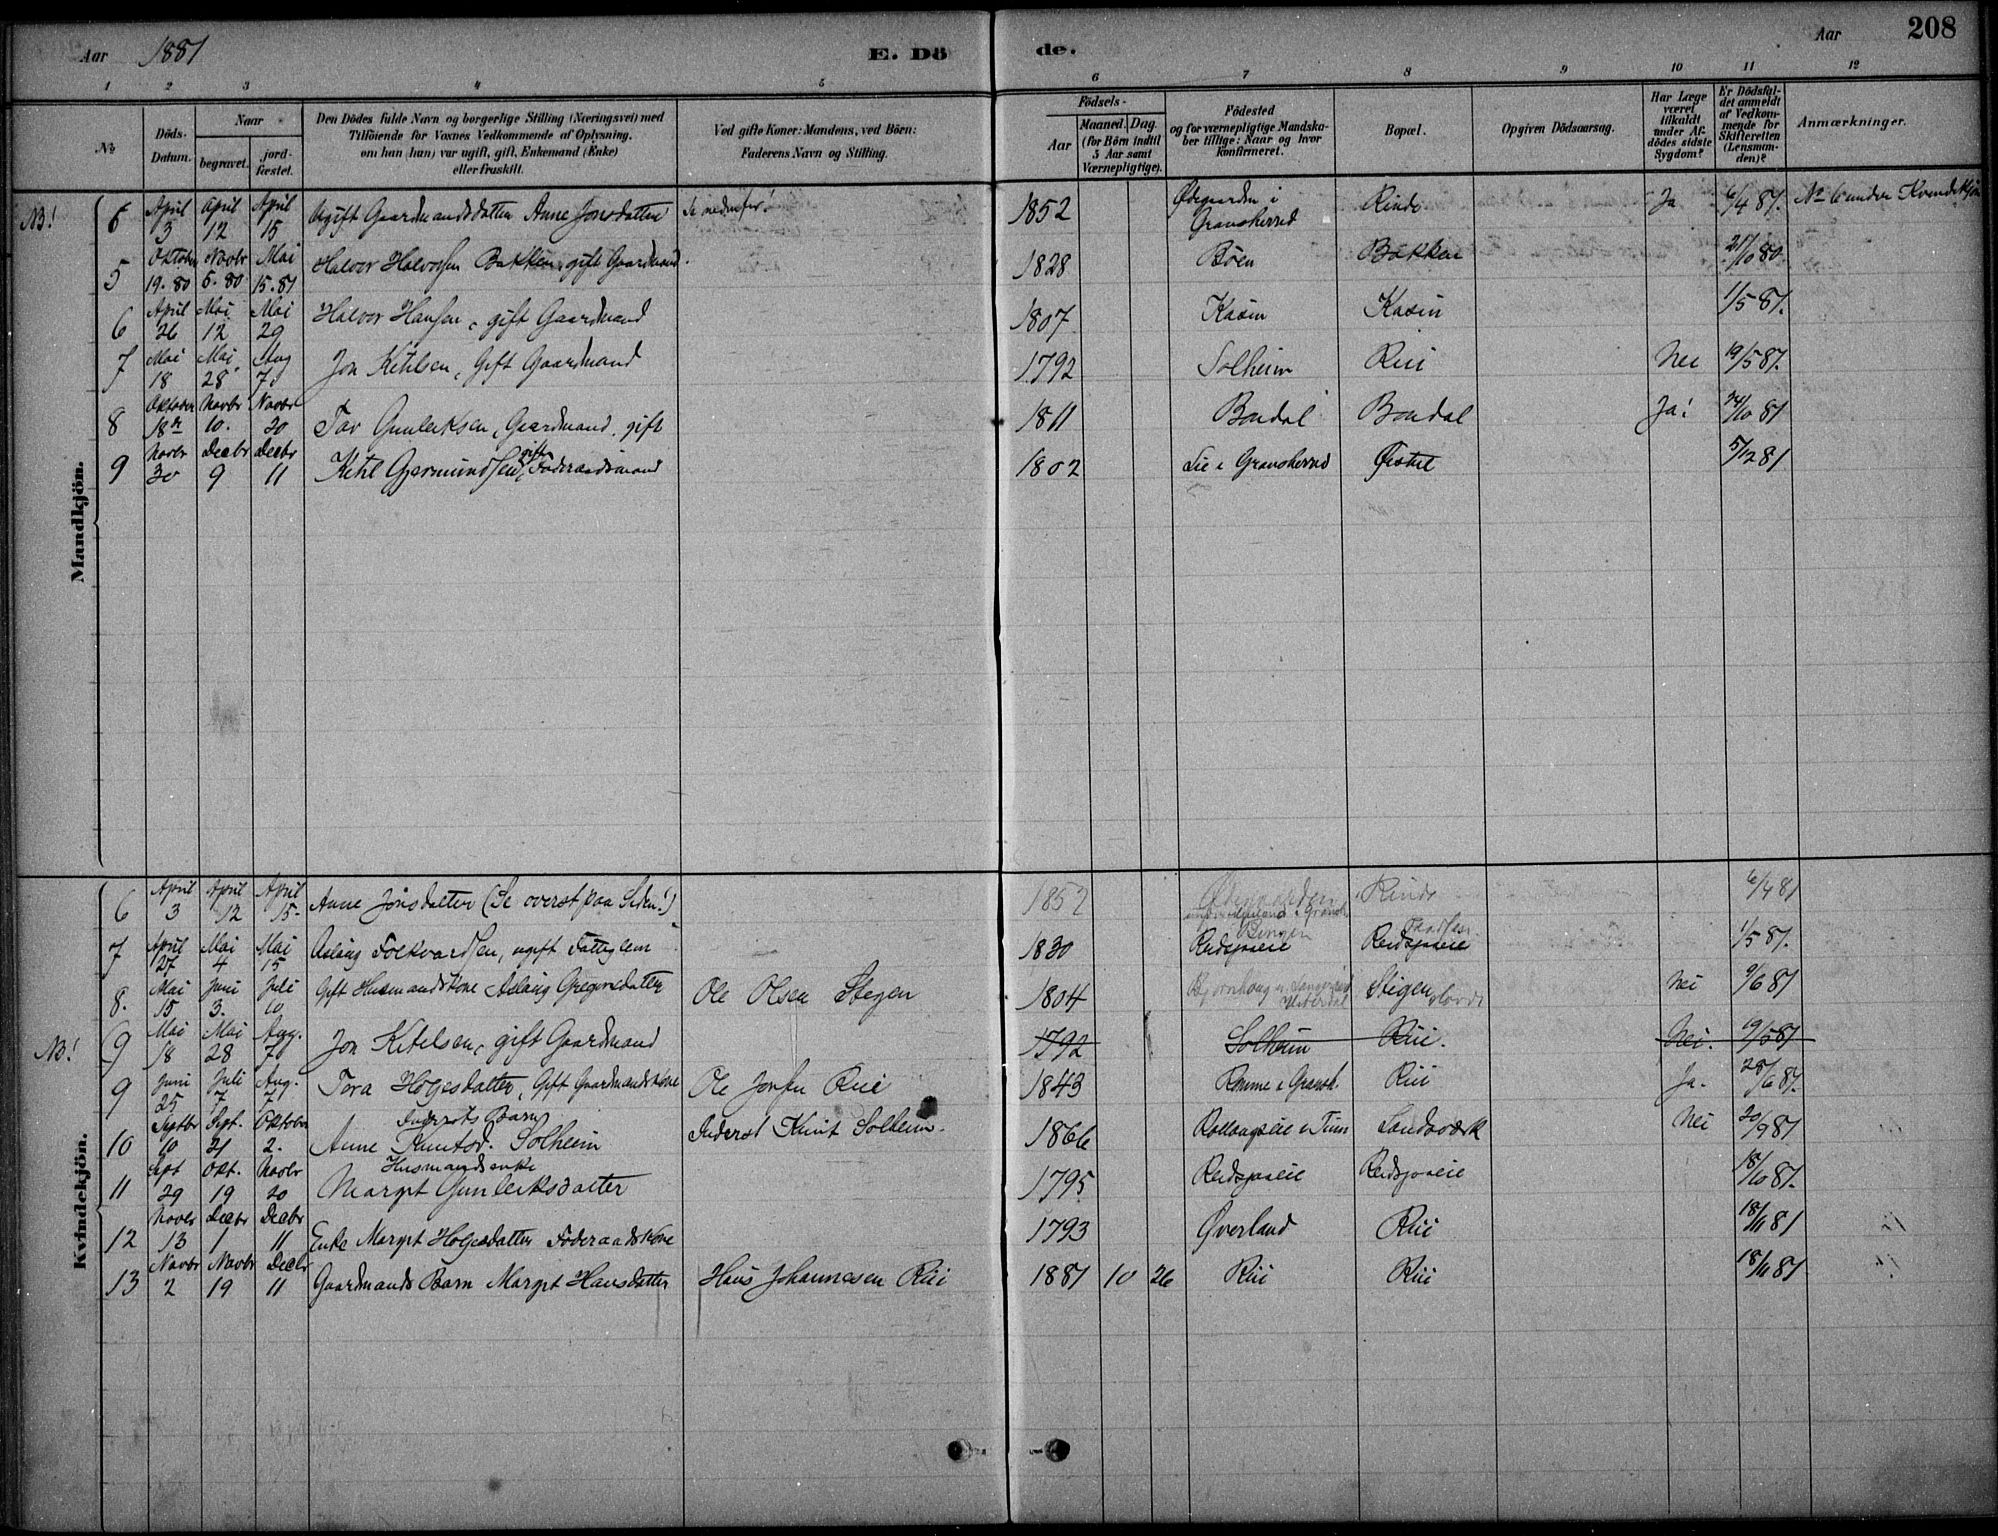 Aar 1881 E. Dö de. Aar 208
1 2 3 4 5 6 7 8 9 10 11 12
No
Döds-Datum.
Naar
begravet. jord-fæstet.
Den Dödes fulde Navn og borgerlige Stilling (Næringsvei) med
Tilföiende for Voxnes Vedkommende af Oplysning,
om han (hun) var ugift, gift, Enkemand (Enke)
eller fraskilt.
Ved gifte Koner: Mandens, ved Börn:
Faderens Navn og Stilling.
Födsels-
Aar
Maaned. Dag.
(for Børn indtil
5 Aar samt
Værnepligtige).
Födested
og for værnepligtige Mandska-
ber tillige: Naar og hvor
konfirmeret.
Bopæl.
Opgiven Dödsaarsag.
Har Læge
været
tilkaldt
under Af-
dödes sidste
Sygdom?
Er Dödsfal-
det anmeldt
af Vedkom-
mende for
Skifteretten
(Lensman-
den)?
Anmærkninger.
Mandkjön.
NB! 6 April 3 April 12 April 15 Ugift Gaardmandsdatter Anne Jonsdatter Se nedenfor! 1852 Ødegaarden i Gransherred Rinde Ja 6/4 81. No 6 under Kvindekjön
5 Oktober 19. 80 Novbr 5. 80 Mai 15. 81 Halvor Halvorsen Bakken, gift Gaardmand. 1828 Böen Bakken 21/10 80
6 April 26 Mai 12 Mai 29 Halvor Hansen, gift Gaardmand 1807 Kasin Kasin 1/5 81.
7 Mai 18 Mai 28 Aug 7. Jon Ketilsen, Gift Gaardmand 1792 Solheim Rui Nei 19/5 81.
8 Oktober 18 Novbr 10. Novbr 20 Tov Gunleiksen, Gaardmand, gift 1811 Bondal Bondal Ja! 24/10 81
9 Novbr 30 Decbr 9 Decbr 11 Ketil Gjermundsen, gift Föderaadsmand 1802 Lie i Gransherred Ørstul 5/12 81
Kvindekjön.
6 April 3 April 12 April 15- Anne Jönsdatter (Se överst paa Siden!) 1852 Ødegaarden Rinde 6/4 81
7 April 27 Mai 4 Mai 15 Aslaug Folkvardsen, ugift Fattiglem 1830 Reidsjaaeie Reidsjaaeie 1/5 81.
8. Mai 15 Juni 3. Juli 10 Gift Husmandskone Aslaug Gregersdatter Ole Olsen Stegen 1804 Stegen Nei 9/6 81
NB! (9) Mai 18 Mai 28 Aug. 7 Jon Ketelsen, gift Gaardmand 1792 Solheim Rui. Nei. 19/5 81
9 Juni 25 Juli 7 Aug. 7 Tora Holjesdatter, Gift Gaardmandskone Ole Jonsen Rui 1843 Romme i Gransh. Rui Ja. 28/6 81.
10 Septbr 10 Sept. 21 Oktober 2. Indersts Barn Anne Knutsd. Solheim Inderst Knut Solheim. 1866 Rollaugseie i Tinn Landsværk Nei 20/9 81
11 Sept 29 Okt. 19 Novbr 20 Husmandsenke Margit Gunleiksdatter 1795 Reidsjaaeie Reidsjaaeie 18/10 81.
12 Novbr 13 Decbr 1 Decbr 11 Enke Margit Holjesdatter Föderaadskone 1793 Øverland Rui 18/11 81
13 Novbr 2 Novbr 19 Decbr 11 Gaardmands Barn Margit Hansdatter Hans Johannesen Rui 1881 10 26 Rui Rui 18/11 81